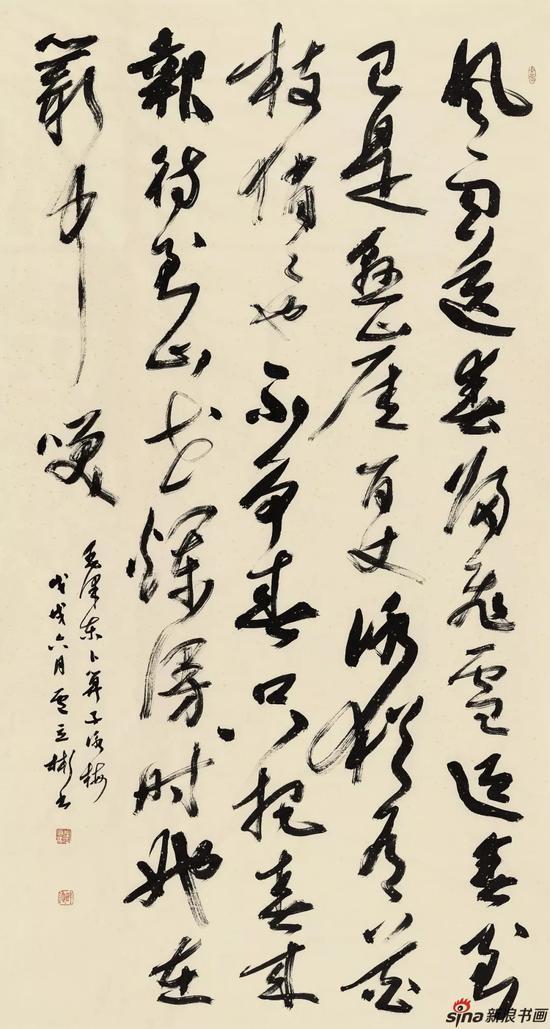 风雨送春归飞雪迎春到
已是悬崖百丈冰犹有花
枝俏々也不争春只把春来
報待到山花爛漫时她在
叢中笑
毛泽东卜算子咏梅
戊戌六月 立彬书
sina 新浪书画